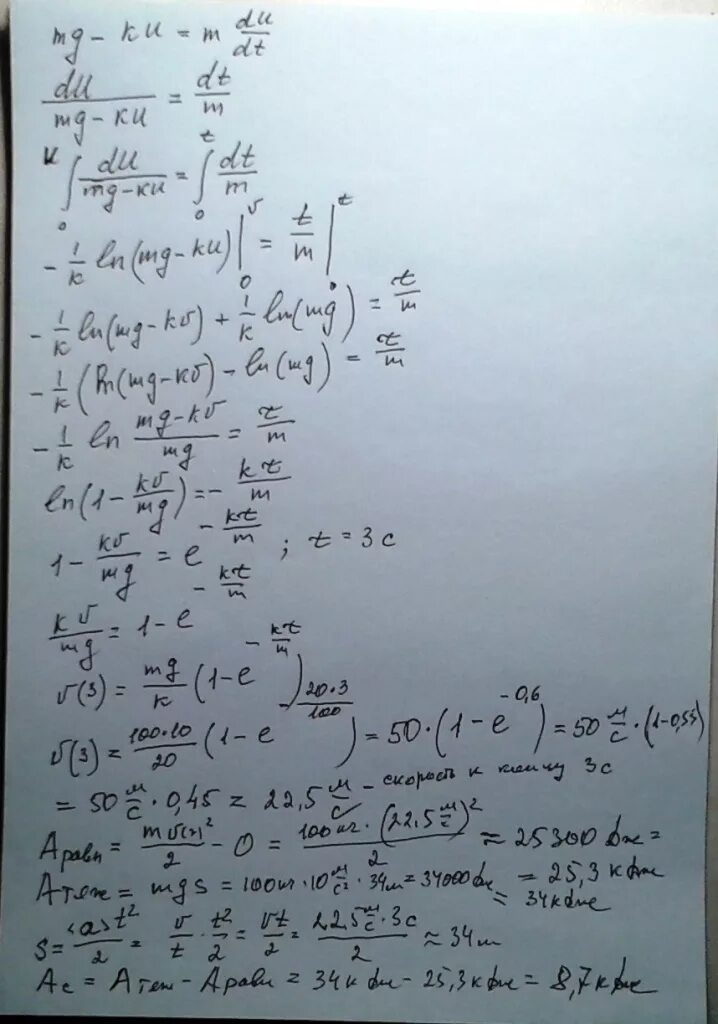 mg - ku = m du/dt
du/(mg - ku) = dt/m
∫₀ du/(mg - ku) = ∫₀ᵗ dt/m
- 1/k ln(mg - ku) |₀^v = t/m |₀^t
- 1/k ln(mg - kv) + 1/k ln(mg) = t/m
- 1/k (ln(mg - kv) - ln(mg) = t/m
- 1/k ln (mg - kv)/mg = t/m
ln(1 - kv/mg) = - kt/m
1 - kv/mg = e^(-kt/m) ; t = 3 с
kv/mg = 1 - e^(-kt/m)
v(3) = mg/k (1 - e^(-kt/m))
v(3) = 100·10/20 (1 - e^(-20·3/100)) = 50·(1 - e^(-0,6)) = 50 м/с · (1 - 0,55)
= 50 м/с · 0,45 = 22,5 м/с - скорость к концу 3 с
A равн = mv²/2 - 0 = 100 кг · (22,5 м/с)²/2 ≈ 25300 Дж =
= 25,3 кДж
A тяж = mgs = 100 кг · 10 м/с² · 34 м = 34000 Дж = 34 кДж
s = <a>t²/2 = v/t · t²/2 = vt/2 = 22,5 м/с · 3 с/2 ≈ 34 м
Aс = A тяж - A равн = 34 кДж - 25,3 кДж = 8,7 кДж